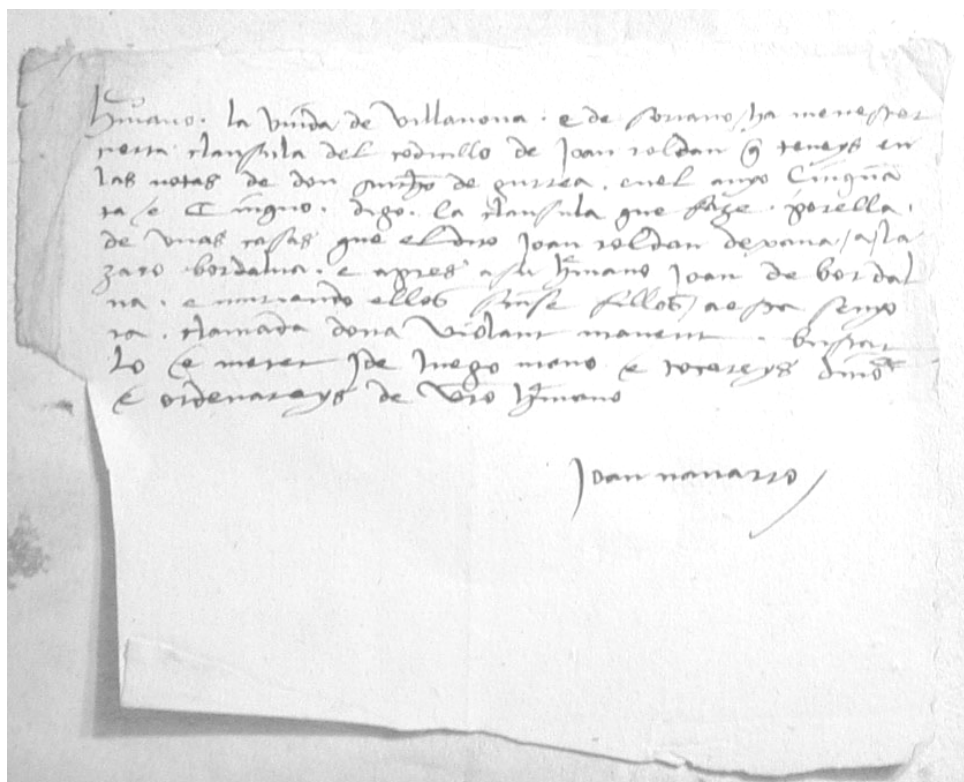 hmano. la viuda de villanoua. e de soriano / ha menester
cierta clausula del codicillo de Joan roldan q̃ teneys en
las notas de don de gurrea. enel anyo Cinquã
ta e Cinquo. digo. la clausula que faze. por ella.
de vnas casas que el dito Joan roldan dexaua / a la
zaro bordalua. e apres a su hmano Joan de bordal
ua. e muriendo ellos sense fillos / a esta senyo
ra. clamada dona violant manent. buscat
lo e meter de luego mano e tocareys dinos
e ordenareys de vro hmano
Joan nauarro